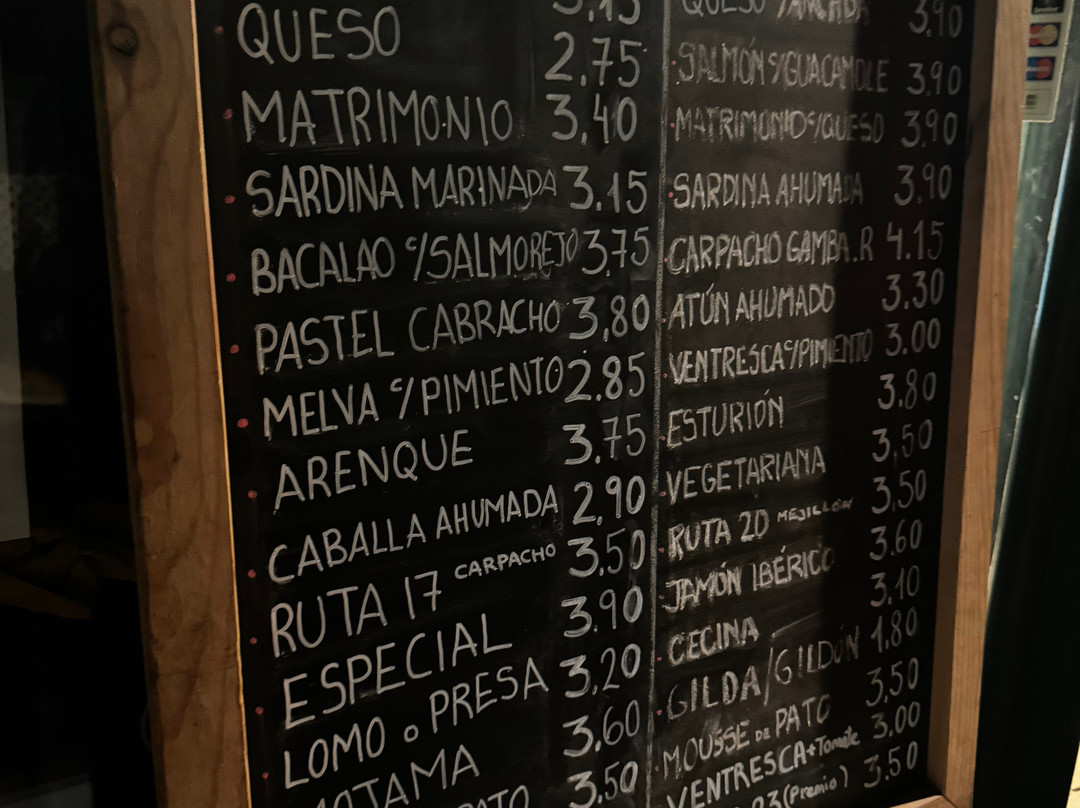 QUESO 2.75
MATRIMONIO 3,40
SARDINA MARINADA 3.15
BACALAO c/SALMOREJO 3,75
PASTEL CABRACHO 3,80
MELVA c/PIMIENTO 2.85
ARENQUE 3.75
CABALLA AHUMADA 2,90
RUTA 17 CARPACHO 3,50
ESPECIAL 3.90
LOMO o PRESA 3,20
3,60
3.50
QUESO 3,90
SALMÓN c/GUACAMOLE 3,90
MATRIMONIO c/QUESO 3.90
SARDINA AHUMADA 3.90
CARPACHO GAMBA.R 4.15
ATÚN AHUMADO 3.30
VENTRESCA c/PIMIENTO 3.00
ESTURIÓN 3,80
VEGETARIANA 3,50
RUTA 20 MEJILLÓN 3,50
JAMÓN IBÉRICO 3.60
CECINA 3.10
GILDA/GILDÓN 1.80
MOUSSE DE PATO 3,50
VENTRESCA+Tomate 3.00
(Premio) 3.50